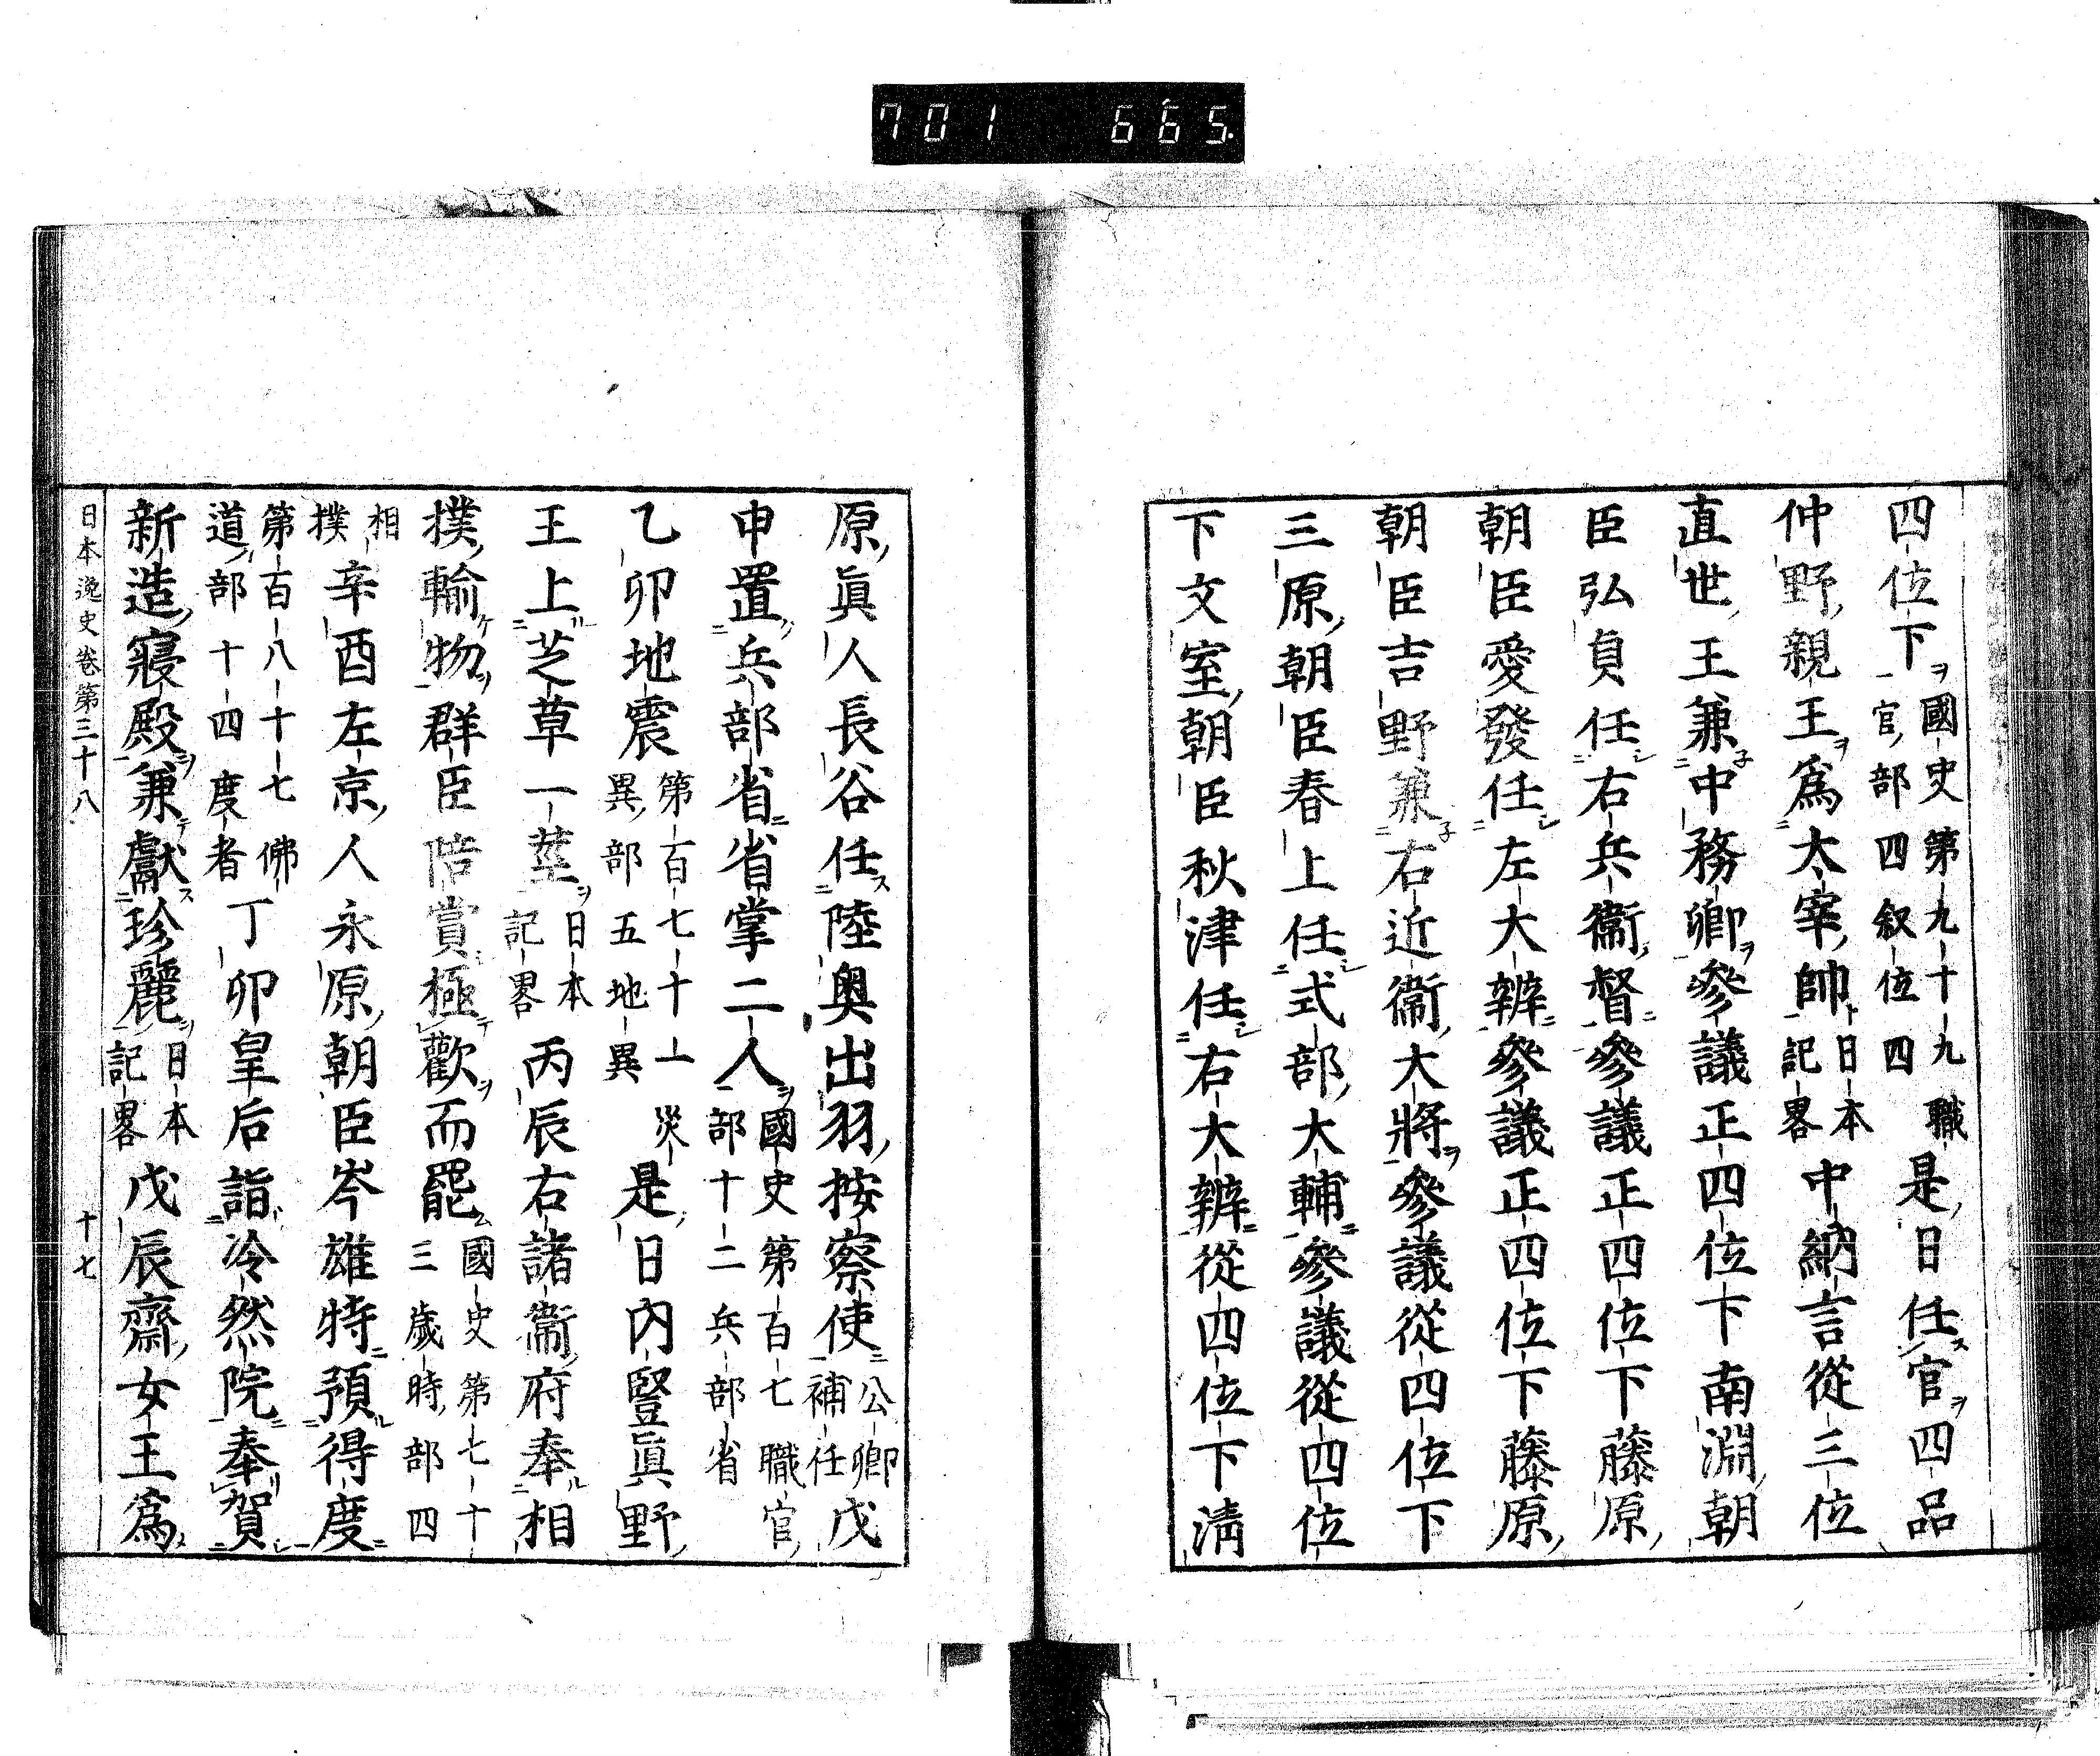 701 665.
四位下國史第九十九職官部四叙位四是日任官四品
仲野親王爲太宰帥日本記畧中納言從三位
直世王兼中務卿參議正四位下南淵朝
臣弘貞任右兵衞督參議正四位下藤原
朝臣愛發任左大辨參議正四位下藤原
朝臣吉野兼右近衞大將參議從四位下
三原朝臣春上任式部大輔參議從四位
下文室朝臣秋津任右大辨從四位下淸
原眞人長谷任陸奥出羽按察使公卿補任戊
申置兵部省省掌二人國史第百七職官部十二兵部省
乙卯地震第百七十一災異部五地異是日内豎眞野
王上芝草一莖日本記畧丙辰右諸衞府奉相
撲輸物群臣陪賞極歡而罷國史第七十三歲時部四
相撲辛酉左京人永原朝臣岑雄特預得度
第百八十七佛道部十四度者丁卯皇后詣冷然院奉賀
新造寢殿兼獻珍麗日本記畧戊辰齋女王爲
日本逸史卷第三十八 十七